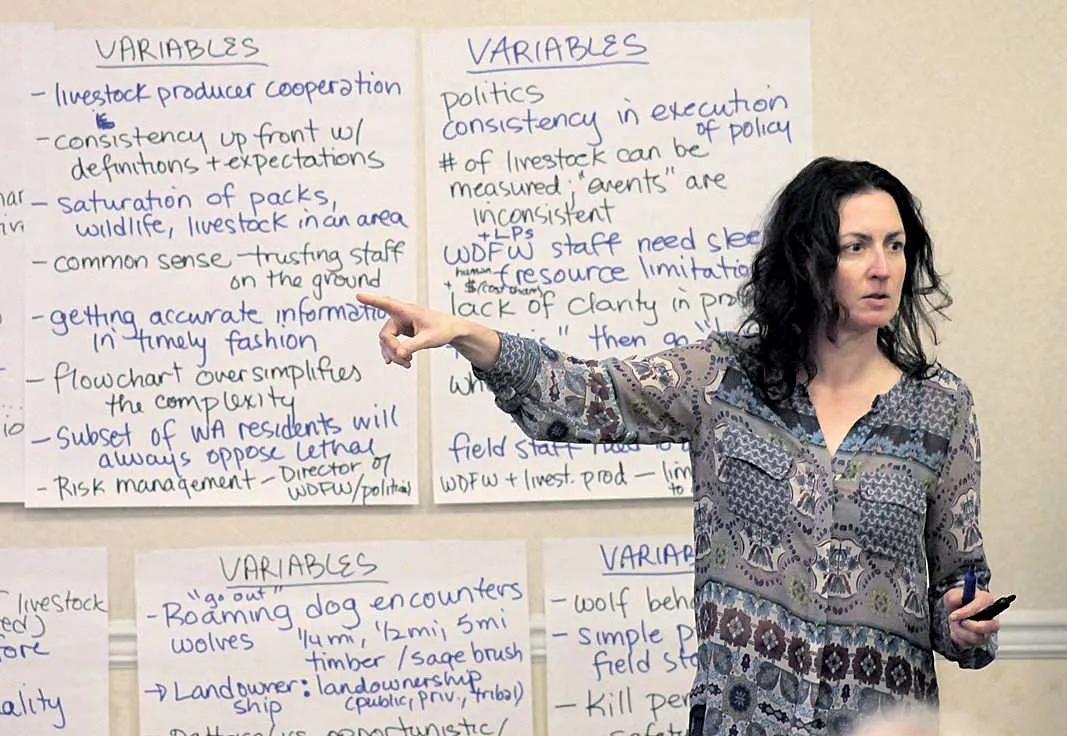 VARIABLES
- livestock producer cooperation
- consistency up front w/
definitions + expectations
- saturation of packs,
wildlife, livestock in an area
- common sense - trusting staff
on the ground
- getting accurate informatio
in timely fashion
- flowchart oversimplifies
the complexity
- Subset of WA residents will
always oppose lethal
- Risk management - Director of
WDFW/political
VARIABLES
politics
consistency in execution
of policy
# of livestock can be
measured; "events" are
inconsistent
+ LPs
WDFW staff need
human
resource
+ $/
lack of clarity in
" then go "
field staff need to
WDFW + livest. prod - lim
to
livestock
ed)
ore
ality
VARIABLES
"go out"
- Roaming dog encounters
wolves 1/4 mi, 1/2 mi, 5 mi
timber / sage brush
→ Landowner: landownership
ship (public, priv., tribal)
opportunistic/
VARIAB
- wolf beh
- simple p
field sta
- Kill per